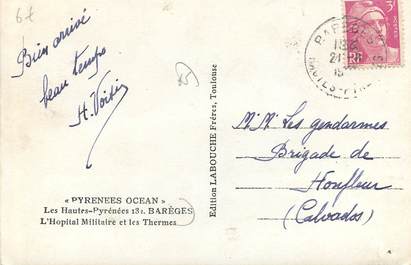 6f
Bien arrivé
beau temps
H. Voisin
25
« PYRENEES OCEAN »
Les Hautes-Pyrénées 131. BARÈGES
L'Hopital Militaire et les Thermes
Edition LABOUCHE Frères, Toulouse
BAREGES
HAUTES-PYR
3F
POSTES
M.M. Les gendarmes
Brigade de
Honfleur
(Calvados)